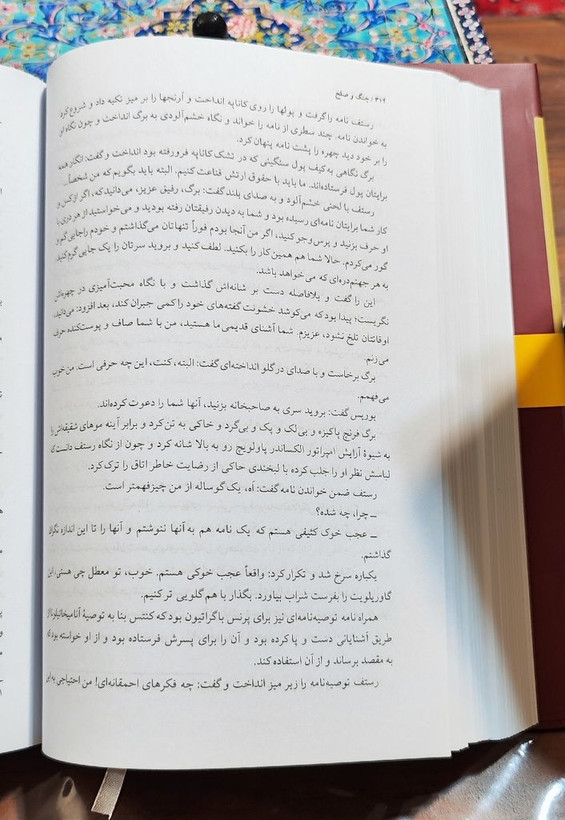 ۳۱۲ / جنگ و صلح
رستف نامه را گرفت و پولها را روی کاناپه انداخت و آرنجها را بر میز تکیه داد و شروع کرد
به خواندن نامه. چند سطری از نامه را خواند و نگاه خشم‌آلودی به برگ انداخت و چون نگاه او
را بر خود دید چهره را پشت نامه پنهان کرد.
برگ نگاهی به کیف پول سنگینی که در تشک کاناپه فرورفته بود انداخت و گفت: انگار همه
برایتان پول فرستاده‌اند. ما باید با حقوق ارتش قناعت کنیم. البته باید بگویم که من شخصاً...
رستف با لحنی خشم‌آلود و به صدای بلند گفت: برگ، رفیق عزیز، می‌دانید که، اگر از کس و
کار شما برایتان نامه‌ای رسیده بود و شما به دیدن رفیقتان رفته بودید و می‌خواستید از هر دری با
او حرف بزنید و پرس‌وجو کنید، اگر من آنجا بودم فوراً تنهاتان می‌گذاشتم و خودم را جایی گم و
گور می‌کردم. حالا شما هم همین کار را بکنید. لطف کنید و بروید سرتان را یک جایی گرم کنید،
به هر جهنم‌دره‌ای که می‌خواهد باشد.
این را گفت و بلافاصله دست بر شانه‌اش گذاشت و با نگاه محبت‌آمیزی در چهره‌اش
نگریست؛ پیدا بود که می‌کوشد خشونت گفته‌های خود را کمی جبران کند، بعد افزود: می‌دانید،
اوقاتتان تلخ نشود، عزیزم. شما آشنای قدیمی ما هستید، من با شما صاف و پوست‌کنده حرف
می‌زنم.
برگ برخاست و با صدای در گلو انداخته‌ای گفت: البته، کنت، این چه حرفی است. من خوب
می‌فهمم.
بوریس گفت: بروید سری به صاحبخانه بزنید، آنها شما را دعوت کرده‌اند.
برگ فرنج پاکیزه و بی‌لک و پک و بی‌گرد و خاکی به تن کرد و برابر آینه موهای شقیقه‌اش را
به شیوهٔ آرایش امپراتور الکساندر پاولویچ رو به بالا شانه کرد و چون از نگاه رستف دانست که
لباسش نظر او را جلب کرده با لبخندی حاکی از رضایت خاطر اتاق را ترک کرد.
رستف ضمن خواندن نامه گفت: آه، یک گوساله از من چیزفهمتر است.
ــ چرا، چه شده؟
ــ عجب خوک کثیفی هستم که یک نامه هم به آنها ننوشتم و آنها را تا این اندازه نگران
گذاشتم.
یکباره سرخ شد و تکرار کرد: واقعاً عجب خوکی هستم. خوب، تو معطل چی هستی، این
گاوریلویت را بفرست شراب بیاورد. بگذار با هم گلویی تر کنیم.
همراه نامه توصیه‌نامه‌ای نیز برای پرنس باگراتیون بود که کنتس بنا به توصیهٔ آنامیخائیلونا از
طریق آشنایانی دست و پا کرده بود و آن را برای پسرش فرستاده بود و از او خواسته بود که
به مقصد برساند و از آن استفاده کند.
رستف توصیه‌نامه را زیر میز انداخت و گفت: چه فکرهای احمقانه‌ای! من احتیاجی به این